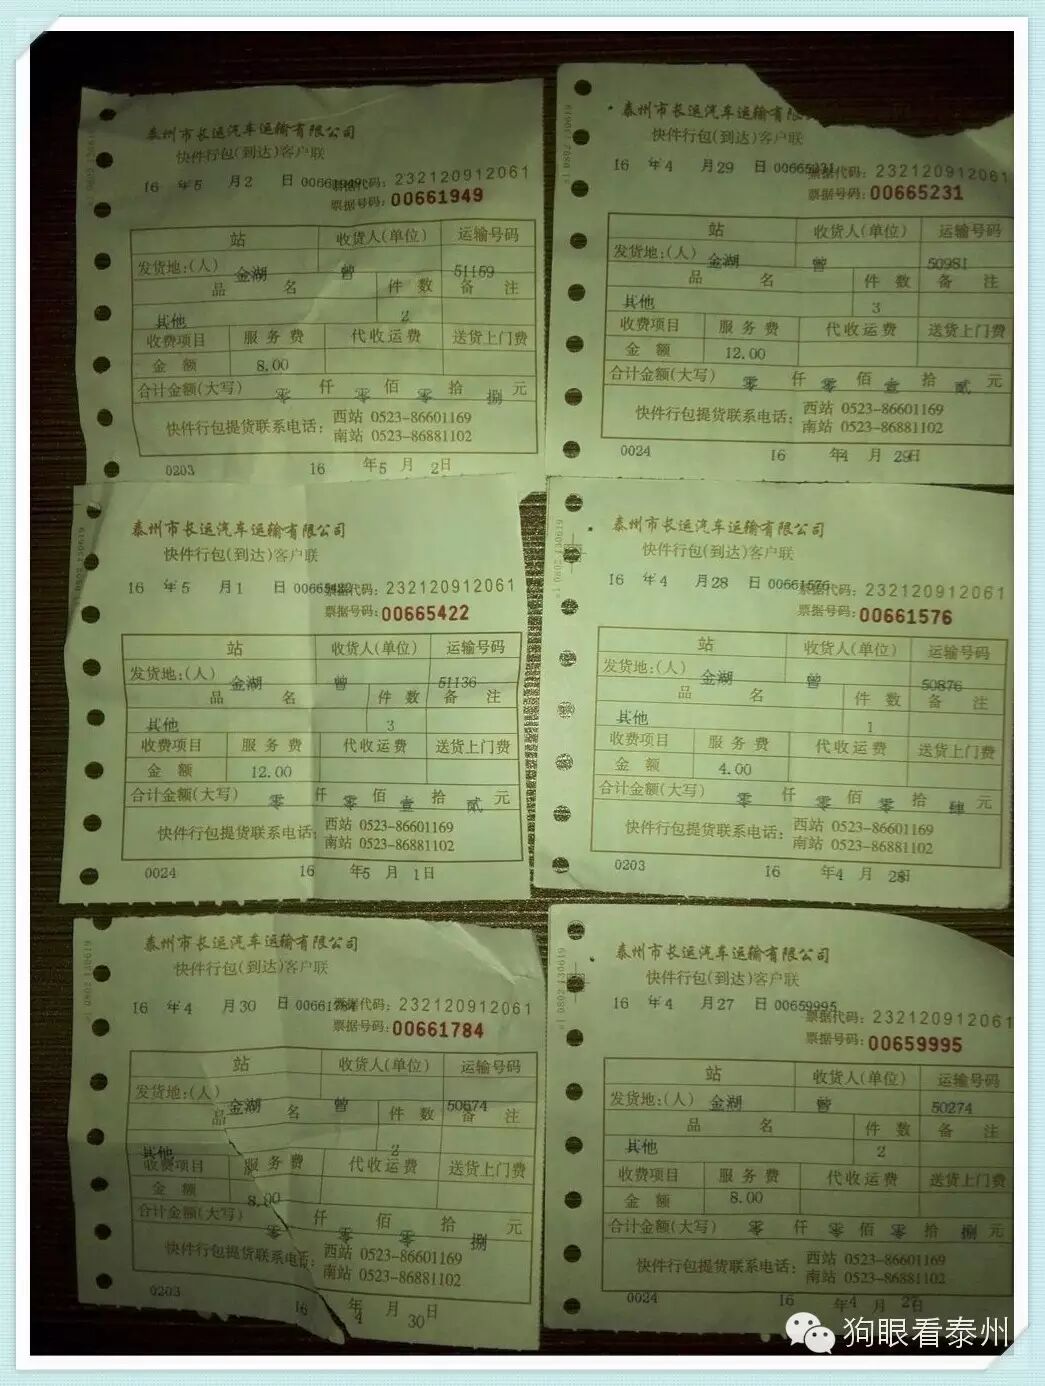 泰州市长运汽车运输有限公司
快件行包(到达)客户联
16 年5 月2 日 00661949 票据代码: 232120912061
票据号码: 00661949
站 收货人(单位) 运输号码
发货地:(人) 金湖 曾 51159
品 名 件 数 备 注
其他 2
收费项目 服 务 费 代收运费 送货上门费
金 额 8.00
合计金额(大写) 零 仟 零 佰 零 拾 捌 元
快件行包提货联系电话: 西站 0523-86601169
南站 0523-86881102
0203 16 年5 月 2日
泰州市长运汽车运输有限
快件行包(到达)客户联
16 年4 月29 日 00665231 票据代码: 232120912061
票据号码: 00665231
站 收货人(单位) 运输号码
发货地:(人) 金湖 曾 50981
品 名 件 数 备 注
其他 3
收费项目 服 务 费 代收运费 送货上门费
金 额 12.00
合计金额(大写) 零 仟 零 佰 壹 拾 贰 元
快件行包提货联系电话: 西站 0523-86601169
南站 0523-86881102
0024 16 年4 月 29日
泰州市长运汽车运输有限公司
快件行包(到达)客户联
16 年5 月1 日 00665422 票据代码: 232120912061
票据号码: 00665422
站 收货人(单位) 运输号码
发货地:(人) 金湖 曾 51136
品 名 件 数 备 注
其他 3
收费项目 服 务 费 代收运费 送货上门费
金 额 12.00
合计金额(大写) 零 仟 零 佰 壹 拾 贰 元
快件行包提货联系电话: 西站 0523-86601169
南站 0523-86881102
0024 16 年5 月 1日
泰州市长运汽车运输有限公司
快件行包(到达)客户联
16 年4 月28 日 00661576 票据代码: 232120912061
票据号码: 00661576
站 收货人(单位) 运输号码
发货地:(人) 金湖 曾 50876
品 名 件 数 备 注
其他 1
收费项目 服 务 费 代收运费 送货上门费
金 额 4.00
合计金额(大写) 零 仟 零 佰 零 拾 肆 元
快件行包提货联系电话: 西站 0523-86601169
南站 0523-86881102
0203 16 年4 月 28日
泰州市长运汽车运输有限公司
快件行包(到达)客户联
16 年4 月30 日 00661784 票据代码: 232120912061
票据号码: 00661784
站 收货人(单位) 运输号码
发货地:(人) 金湖 曾 50674
品 名 件 数 备 注
其他 2
收费项目 服 务 费 代收运费 送货上门费
金 额 8.00
合计金额(大写) 零 仟 零 佰 零 拾 捌 元
快件行包提货联系电话: 西站 0523-86601169
南站 0523-86881102
0203 16 年4 月 30日
泰州市长运汽车运输有限公司
快件行包(到达)客户联
16 年4 月27 日 00659995 票据代码: 232120912061
票据号码: 00659995
站 收货人(单位) 运输号码
发货地:(人) 金湖 曾 50274
品 名 件 数 备 注
其他 2
收费项目 服 务 费 代收运费 送货上门费
金 额 8.00
合计金额(大写) 零 仟 零 佰 零 拾 捌 元
快件行包提货联系电话: 西站 0523-86601169
南站 0523-86881102
0024 16 年4 月 27日
狗眼看泰州